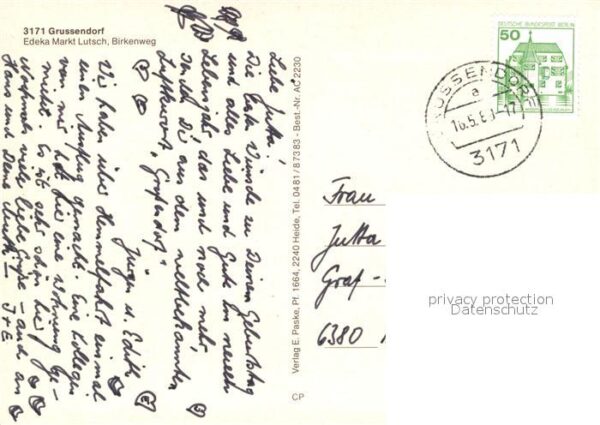 3171 Grussendorf
Edeka Markt Lutsch, Birkenweg
Liebe Jutta!
Die besten Wünsche zu Deinem Geburtstag
und alles Liebe und Gute im neuen
Lebensjahr, das und noch mehr,
Dir aus dem weltbekannten
Luftkurort, Grußendorf!
Jürgen u. Edith
Wir haben über Himmelfahrt einmal
einen Ausflug gemacht. Eine Kollegin
von mir hat hier eine Wohnung ge-
mietet. Es ist sehr schön hier
Nochmals viele liebe Grüße – auch an
Hans und Deine
J + E
Verlag E. Paske, Pf. 1664, 2240 Heide, Tel. 0481/87383 - Best.-Nr. AC 2230
CP
DEUTSCHE BUNDESPOST BERLIN
50
GRUSSENDORF
a
3171
Frau
Jutta
Graf -
6380
privacy protection
Datenschutz